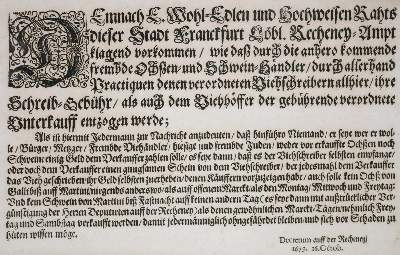 Demnach E. Wohl-Edlen und Hochweisen Rahts
dieser Stadt Franckfurt Löbl. Recheney-Ampt
klagend vorkommen / wie daß durch die anhero kommende
frembde Ochßen und Schwein-Händler / durch allerhand
Practiquen denen verordneten Viehschreibern allhier / ihre
Schreib-Gebühr / als auch dem Viehhöffer der gebührende verordnete
Unterkauff entzogen werde;
Als ist hiermit Jedermann zur Nachricht anzudeuten / daß hinführo Niemand / er seye wer er wol-
le / Bürger / Metzger / Frembde Viehändler / hiesige und frembde Juden / weder vor erkauffte Ochßen noch
Schweine einig Geld dem Verkauffer zahlen solle / es seye dann / daß er der Viehschreiber selbsten empfange /
oder doch dem Verkauffer einen gnugsamen Schein von dem Viehschreiber / der jedesmahl dem Verkauffer
das Vieh geschrieben / ihr Geld selbsten zuerheben / denen Käuffern vorzuzeigen habe / auch solle kein Ochß von
Galli biß auff Martini nirgends anderswo / als auff offenem Marckt / als den Montag / Mittwoch und Freytag:
Und kein Schwein von Martini biß Fastnacht auff keinen andern Tag (es seye dann mit außtrücklicher Ver-
günstigung der Herren Deputirten auff der Rechney) als denen gewöhnlichen Marckt-Tägen nehmlich Frey-
tag und Sambstag verkaufft werden / damit jedermänniglich ohngefährdet bleiben und sich vor Schaden zu
hüten wissen möge.
Decretum auff der Recheney
1675. 26. Octob.